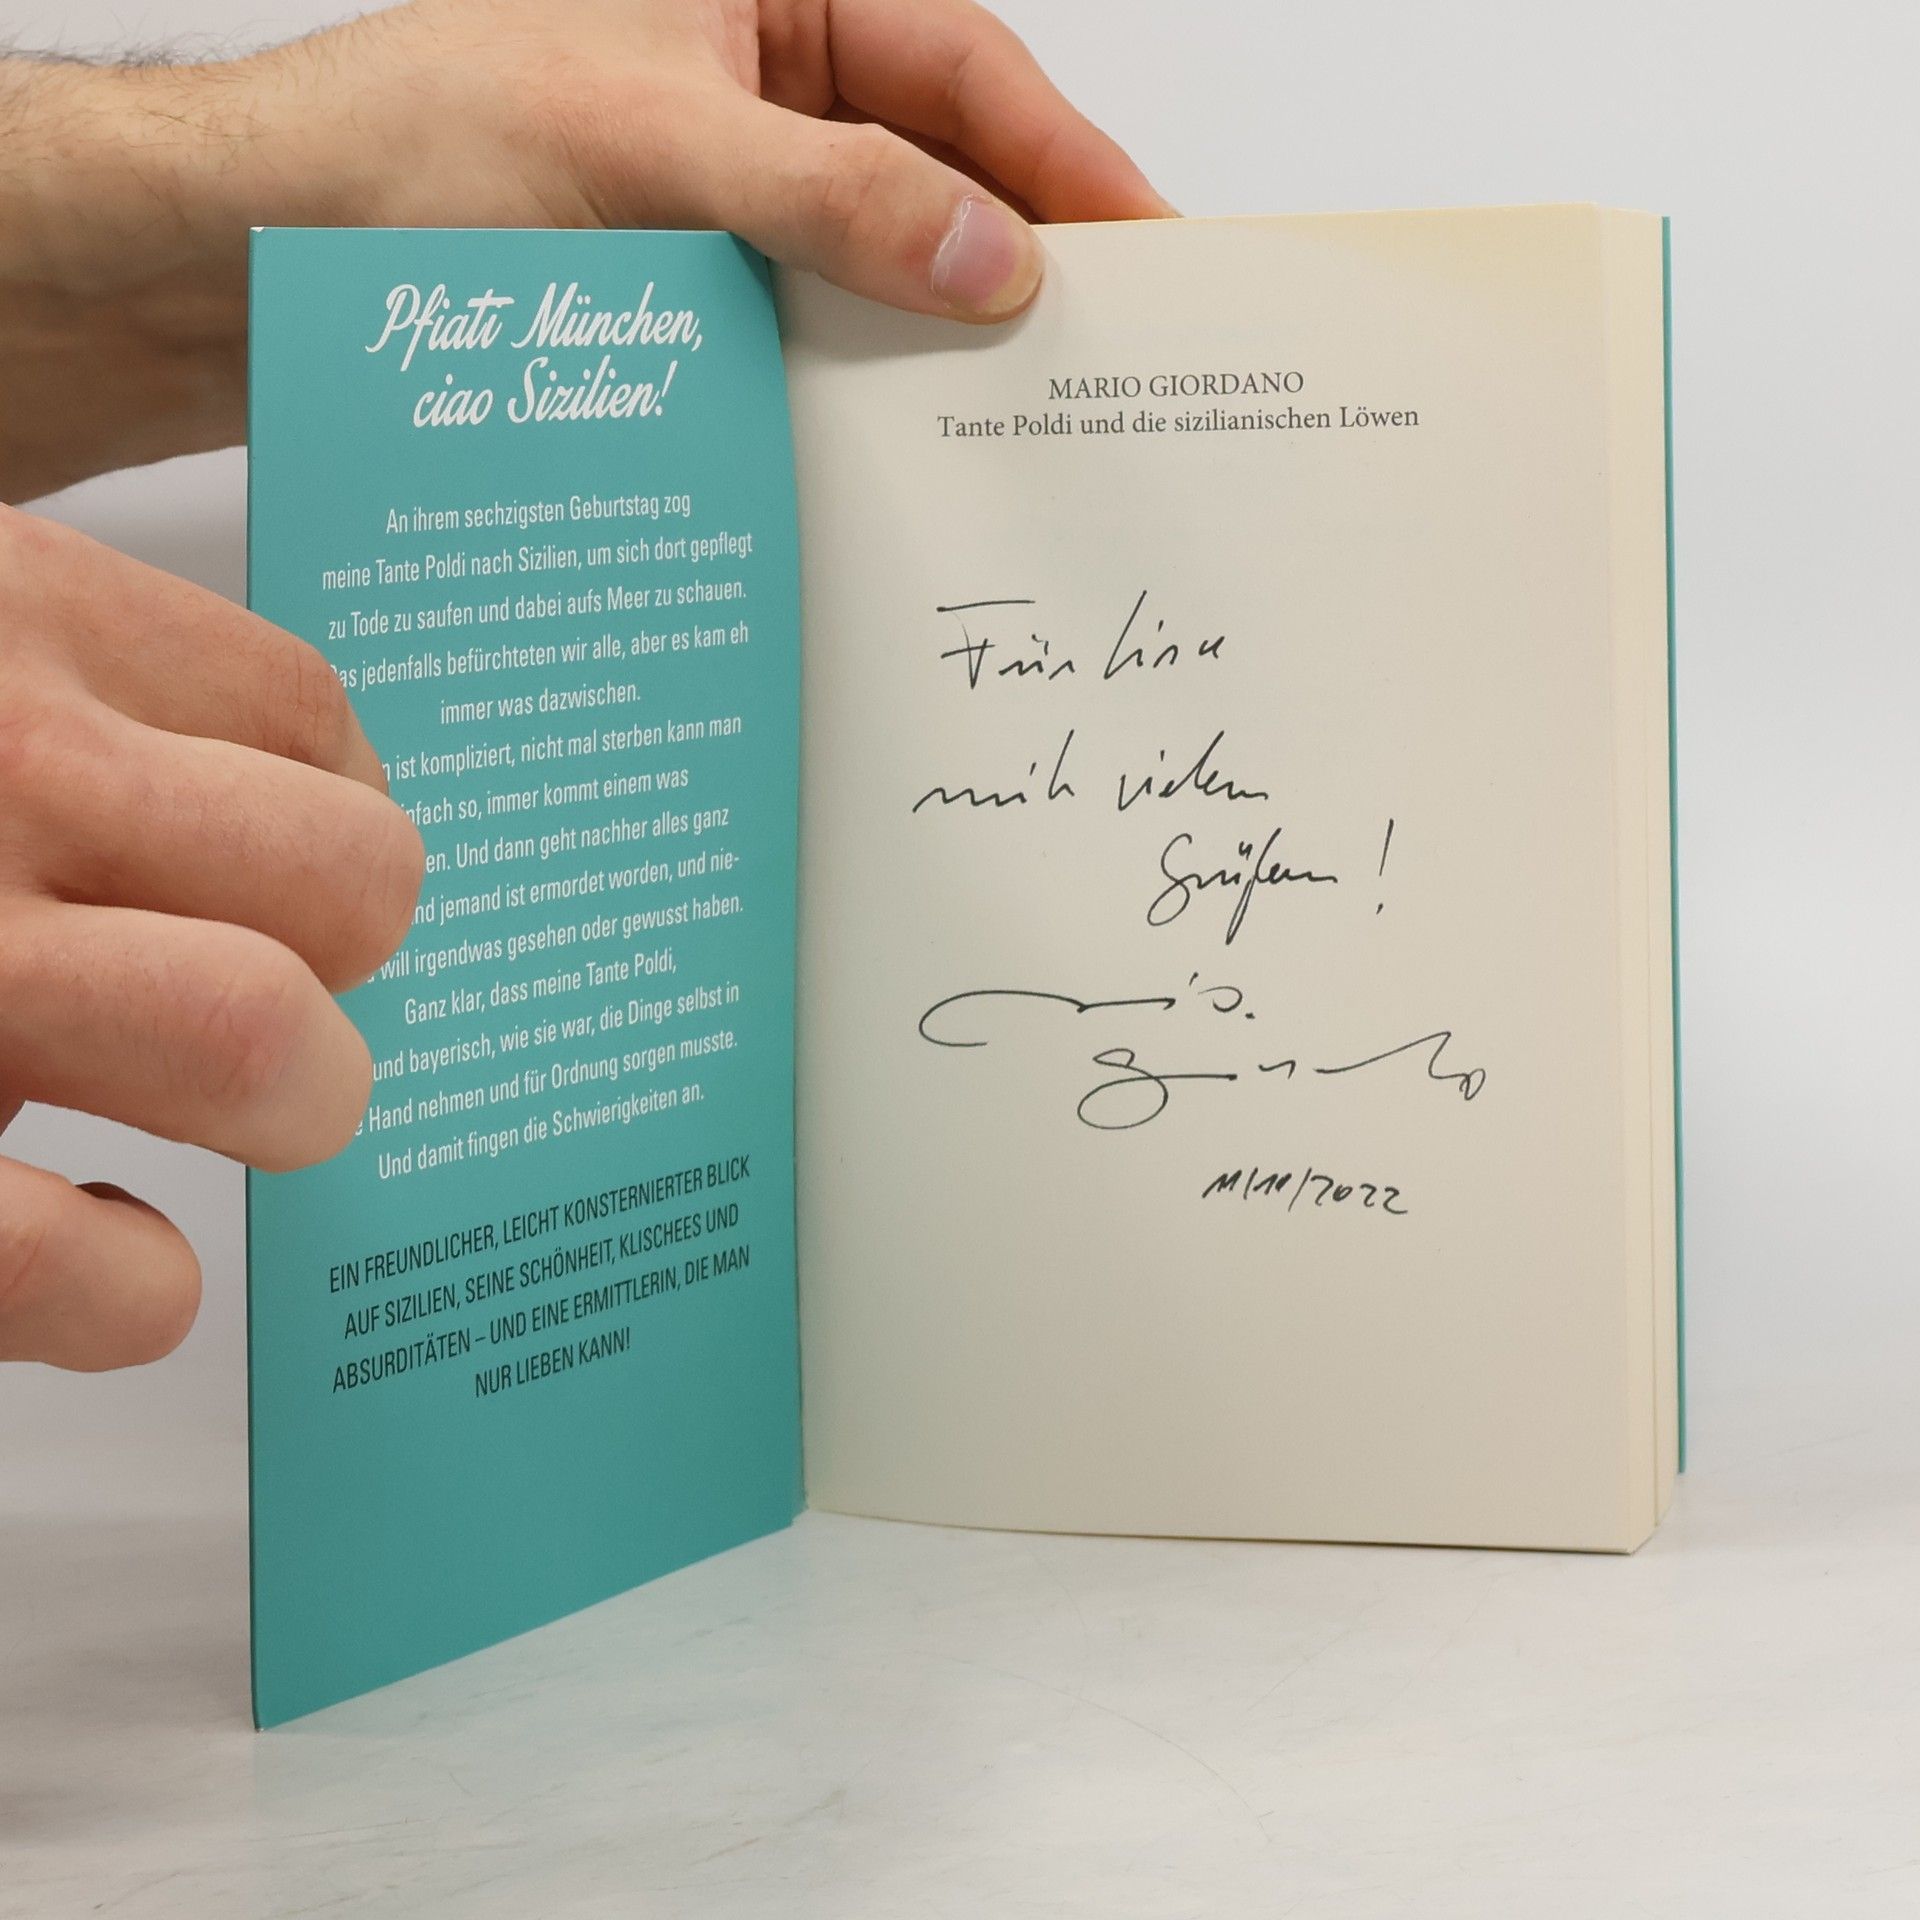 Pfiati München,
ciao Sizilien!
An ihrem sechzigsten Geburtstag zog
meine Tante Poldi nach Sizilien, um sich dort gepflegt
zu Tode zu saufen und dabei aufs Meer zu schauen.
Das jedenfalls befürchteten wir alle, aber es kam eh
immer was dazwischen.
ist kompliziert, nicht mal sterben kann man
so, immer kommt einem was
Und dann geht nachher alles ganz
jemand ist ermordet worden, und nie-
will irgendwas gesehen oder gewusst haben.
Ganz klar, dass meine Tante Poldi,
und bayerisch, wie sie war, die Dinge selbst in
Hand nehmen und für Ordnung sorgen musste.
Und damit fingen die Schwierigkeiten an.
EIN FREUNDLICHER, LEICHT KONSTERNIERTER BLICK
AUF SIZILIEN, SEINE SCHÖNHEIT, KLISCHEES UND
ABSURDITÄTEN – UND EINE ERMITTLERIN, DIE MAN
NUR LIEBEN KANN!
MARIO GIORDANO
Tante Poldi und die sizilianischen Löwen
Für Lisa
mit vielen
Grüßen!
11/10/2022